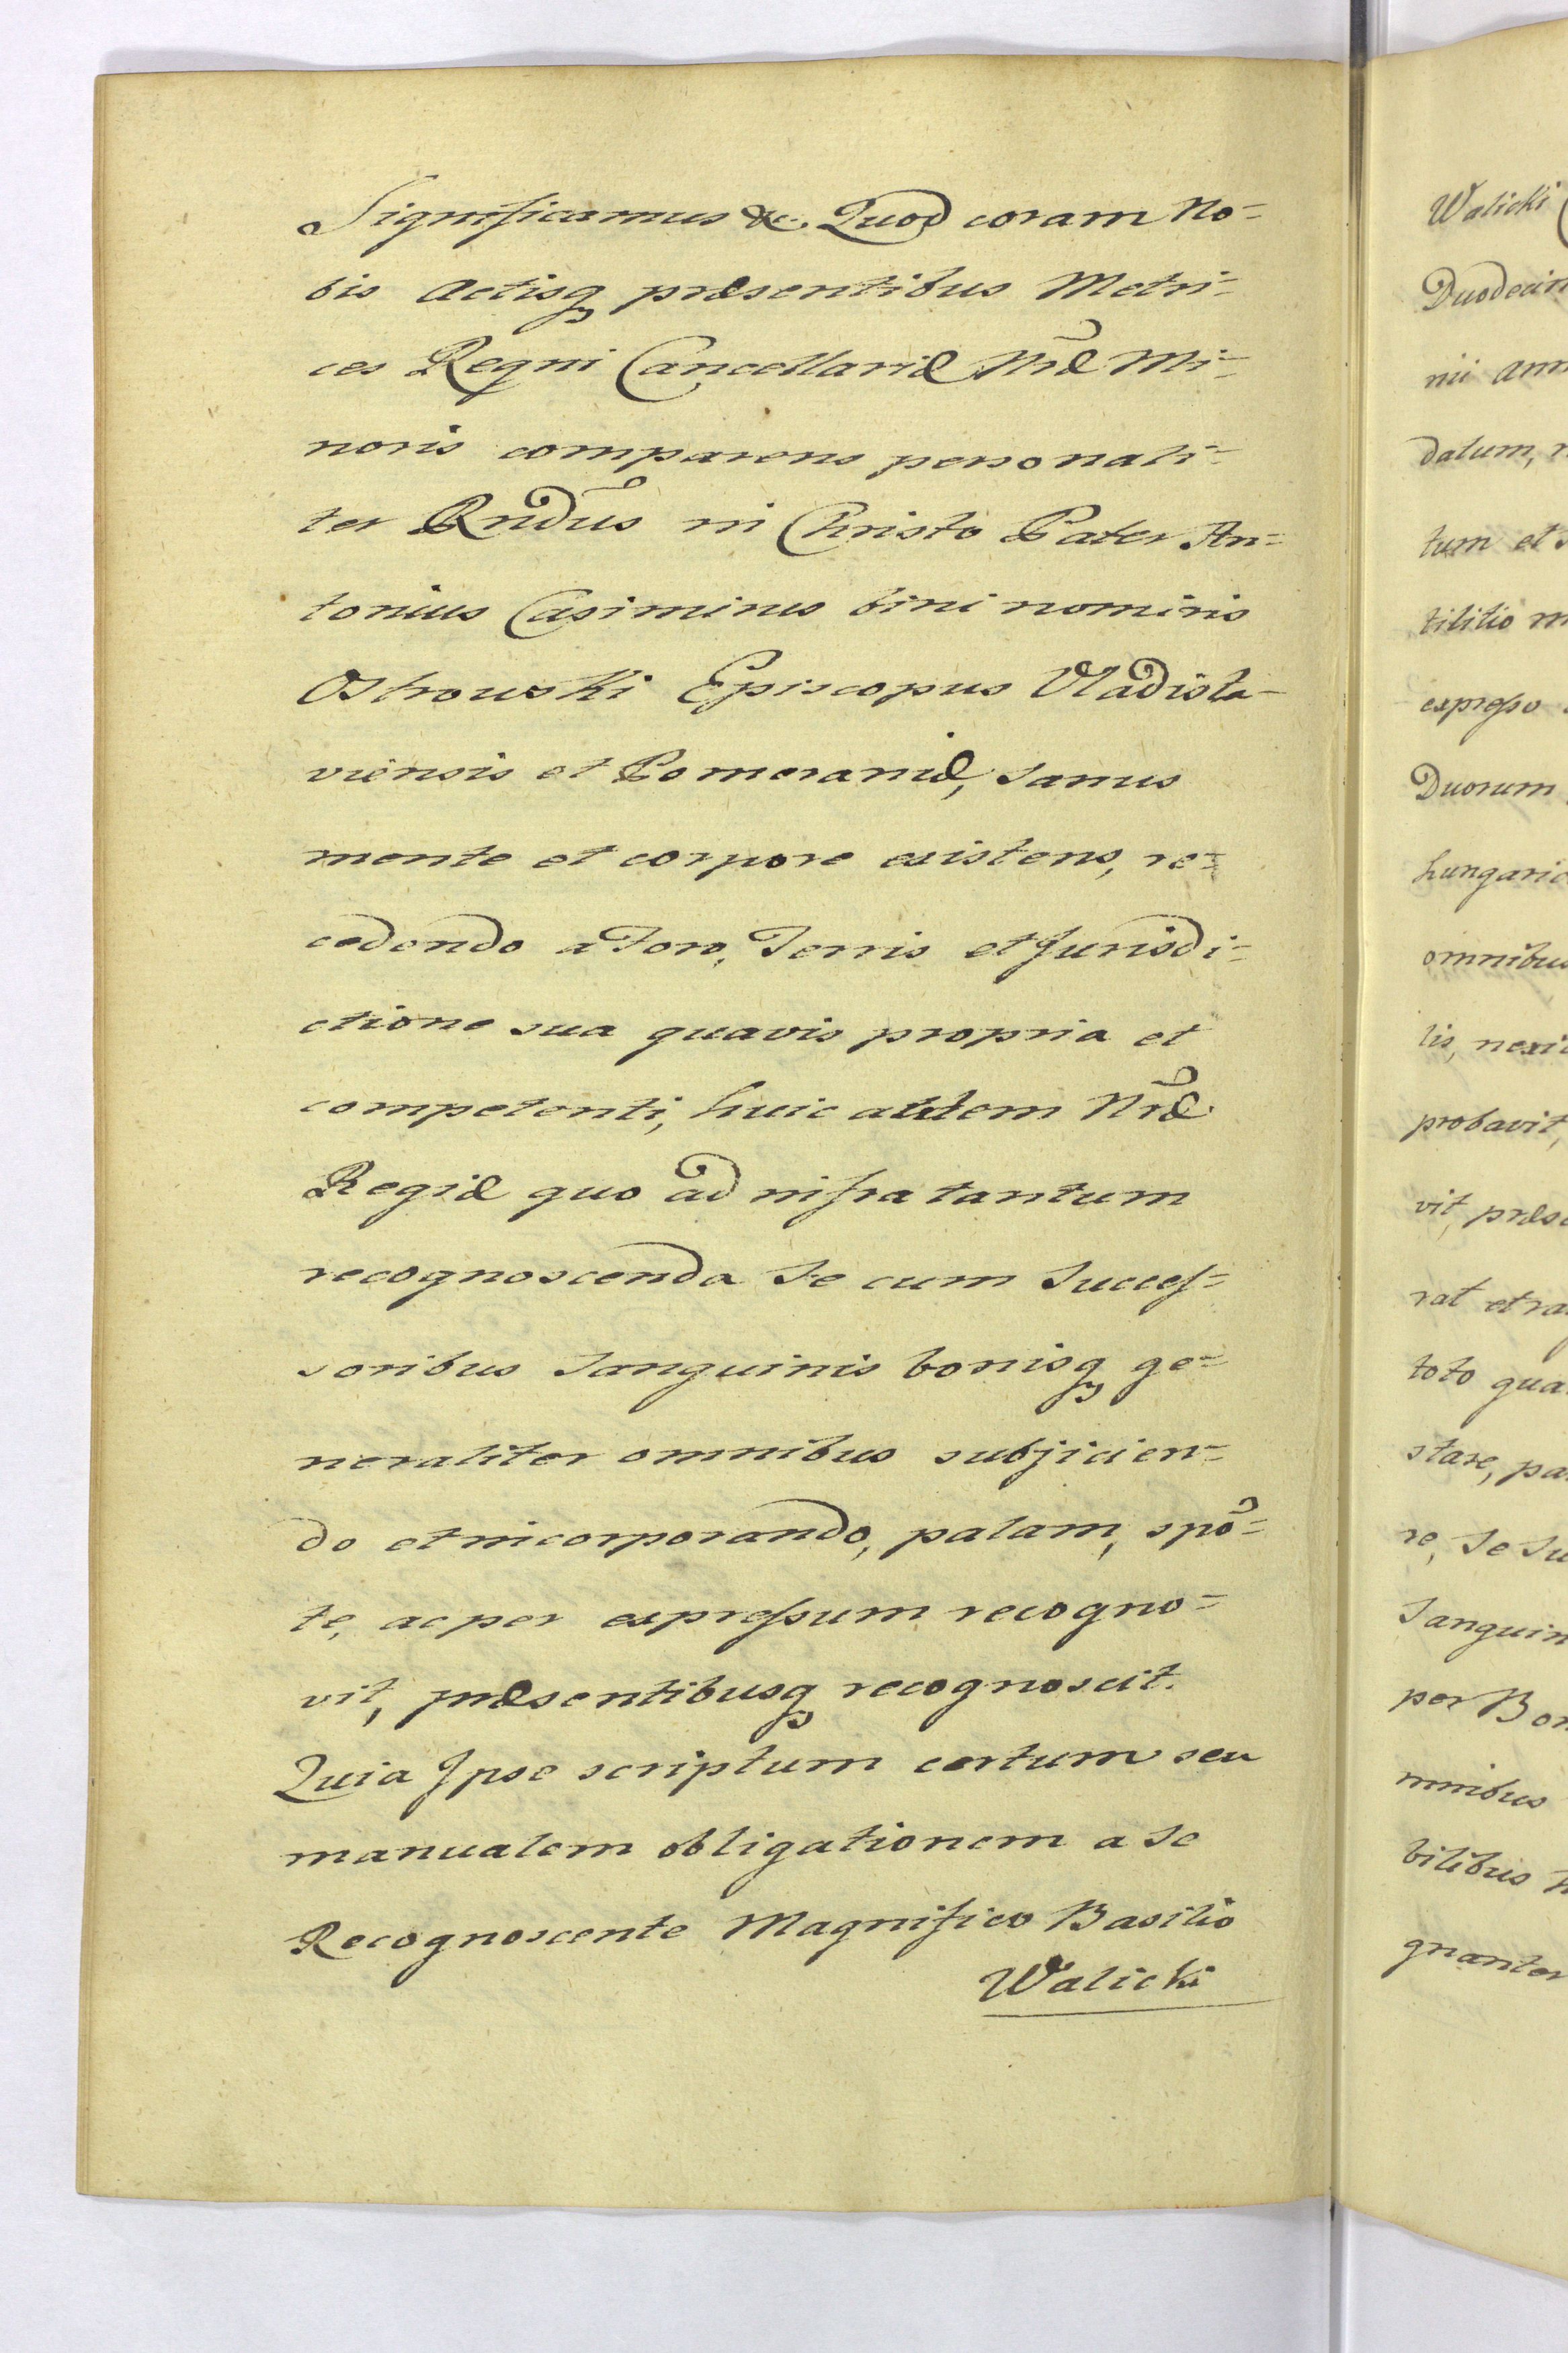 Significamus &c. Quod coram No=
bis Actisq₃ præsentibus Metri=
ces Regni Cancellariæ Nr̃æ Mi=
noris comparens personali=
ter Rñdus in Christo Pater An=
tonius Casimirus bini nominis
Ostrowski Episcopus Vladisla-
viensis et Pomeraniæ, Sanus
mente et corpore existens, re=
cedendo a Foro, Terris et Jurisdi=
ctione sua quavis propria et
competenti, huic autem Nr̃æ
Regiæ quo ad infra tantum
recognoscenda Se cum Succeſ=
soribus Sanguinis bonisq₃ ge=
neraliter omnibus subjicien=
do et incorporando, palam, spõ=
te, ac per expreſsum recogno=
vit, præsentibusq₃ recognoscit.
Quia Ipse scriptum certum seu
manualem obligationem a Se
Recognoscente Magnifico Basilio
Walicki
Walicki
Duodecim
nii ann
datum,
tum et
titilio
expreſso
Duorum
hungaric
omnibus
lis, nexi
probavit,
vit, præs
rat et ra
toto qua
stare, pa
re, Se Su
Sanguin
per Bon
mnibus
bilibus
gnanter